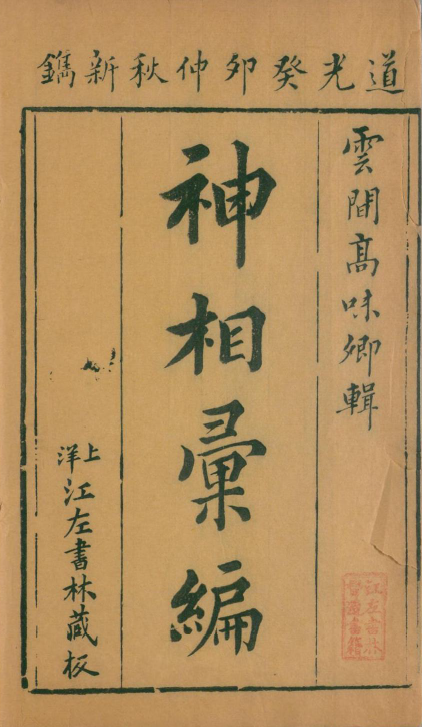 道光癸卯仲秋新鐫
雲間高味卿輯
神相彙編
上洋江左書林藏板
江左書林